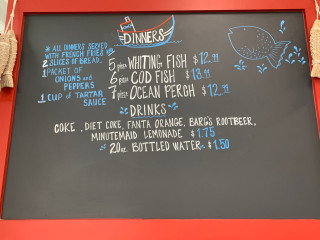 DINNERS
* ALL DINNERS SERVED
WITH FRENCH FRIES
2 SLICES OF BREAD
1 PACKET OF
ONIONS AND
PEPPERS
1 CUP OF TARTAR
SAUCE
5 piece WHITING FISH $12.99
6 piece COD FISH $13.99
7 piece OCEAN PERCH $12.99
DRINKS
COKE, DIET COKE, FANTA ORANGE, BARQ'S ROOTBEER,
MINUTEMAID LEMONADE $1.75
20oz BOTTLED WATER $1.50